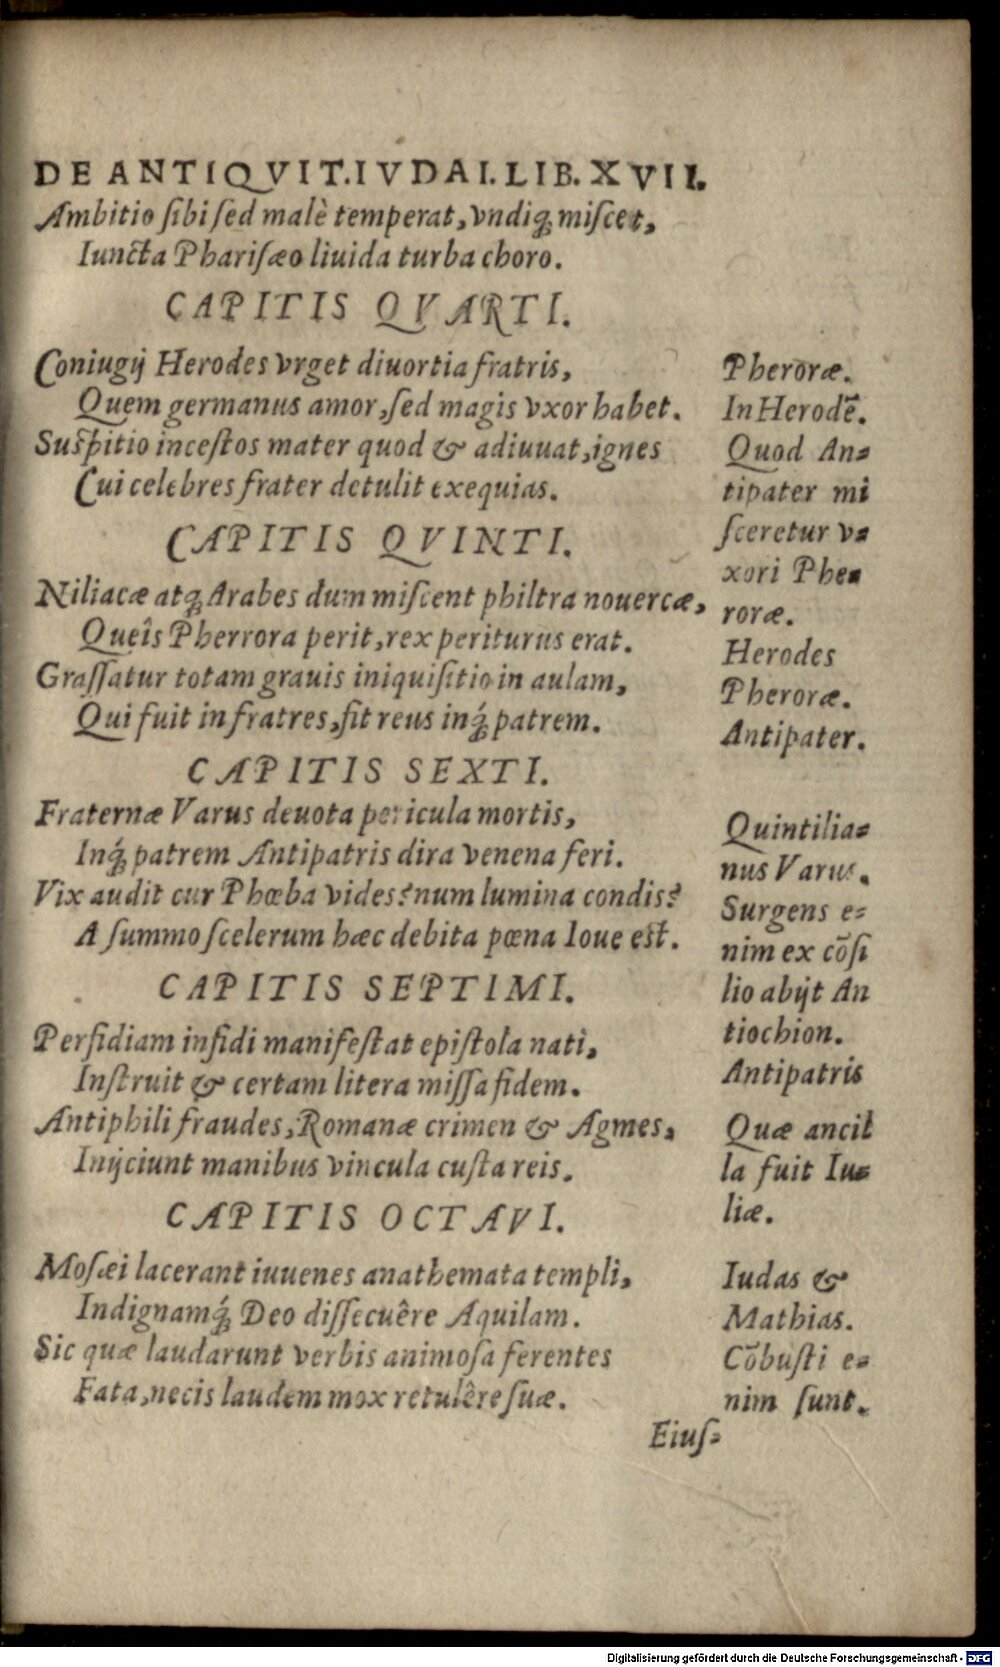 DE ANTIQVIT.IVDAI.LIB.XVII.
Ambitio ſibi ſed malè temperat, vndiq; miſcet,
Iuncta Phariſæo liuida turba choro.
CAPITIS QVARTI.
Coniugij Herodes vrget diuortia fratris,
Quem germanus amor, ſed magis vxor habet.
Suſpitio inceſtos mater quod & adiuuat, ignes
Cui celebres frater detulit exequias.
CAPITIS QVINTI.
Niliacæ atq; Arabes dum miſcent philtra nouercæ,
Queîs Pherrora perit, rex periturus erat.
Graſſatur totam grauis iniquiſitio in aulam,
Qui fuit in fratres, fit reus inq́; patrem.
CAPITIS SEXTI.
Fraternæ Varus deuota pericula mortis,
Inq́; patrem Antipatris dira venena feri.
Vix audit cur Phœba vides? num lumina condis?
A ſummo ſcelerum hæc debita pœna Ioue eſt.
CAPITIS SEPTIMI.
Perfidiam infidi manifeſtat epiſtola nati,
Inſtruit & certam litera miſſa fidem.
Antiphili fraudes, Romanæ crimen & Agmes,
Inijciunt manibus vincula cuſta reis.
CAPITIS OCTAVI.
Moſæi lacerant iuuenes anathemata templi,
Indignamq́; Deo diſſecuêre Aquilam.
Sic quæ laudarunt verbis animoſa ferentes
Fata, necis laudem mox retulêre ſuæ.
Eiuſ-
Pheroræ.
In Herodē.
Quod An-
tipater mi
ſceretur v-
xori Phe-
roræ.
Herodes
Pheroræ.
Antipater.
Quintilia-
nus Varus.
Surgens e-
nim ex cōſi
lio abijt An
tiochion.
Antipatris
Quæ ancil
la fuit Iu-
liæ.
Iudas &
Mathias.
Cōbuſti e-
nim ſunt.
Digitalisierung gefördert durch die Deutsche Forschungsgemeinschaft - DFG